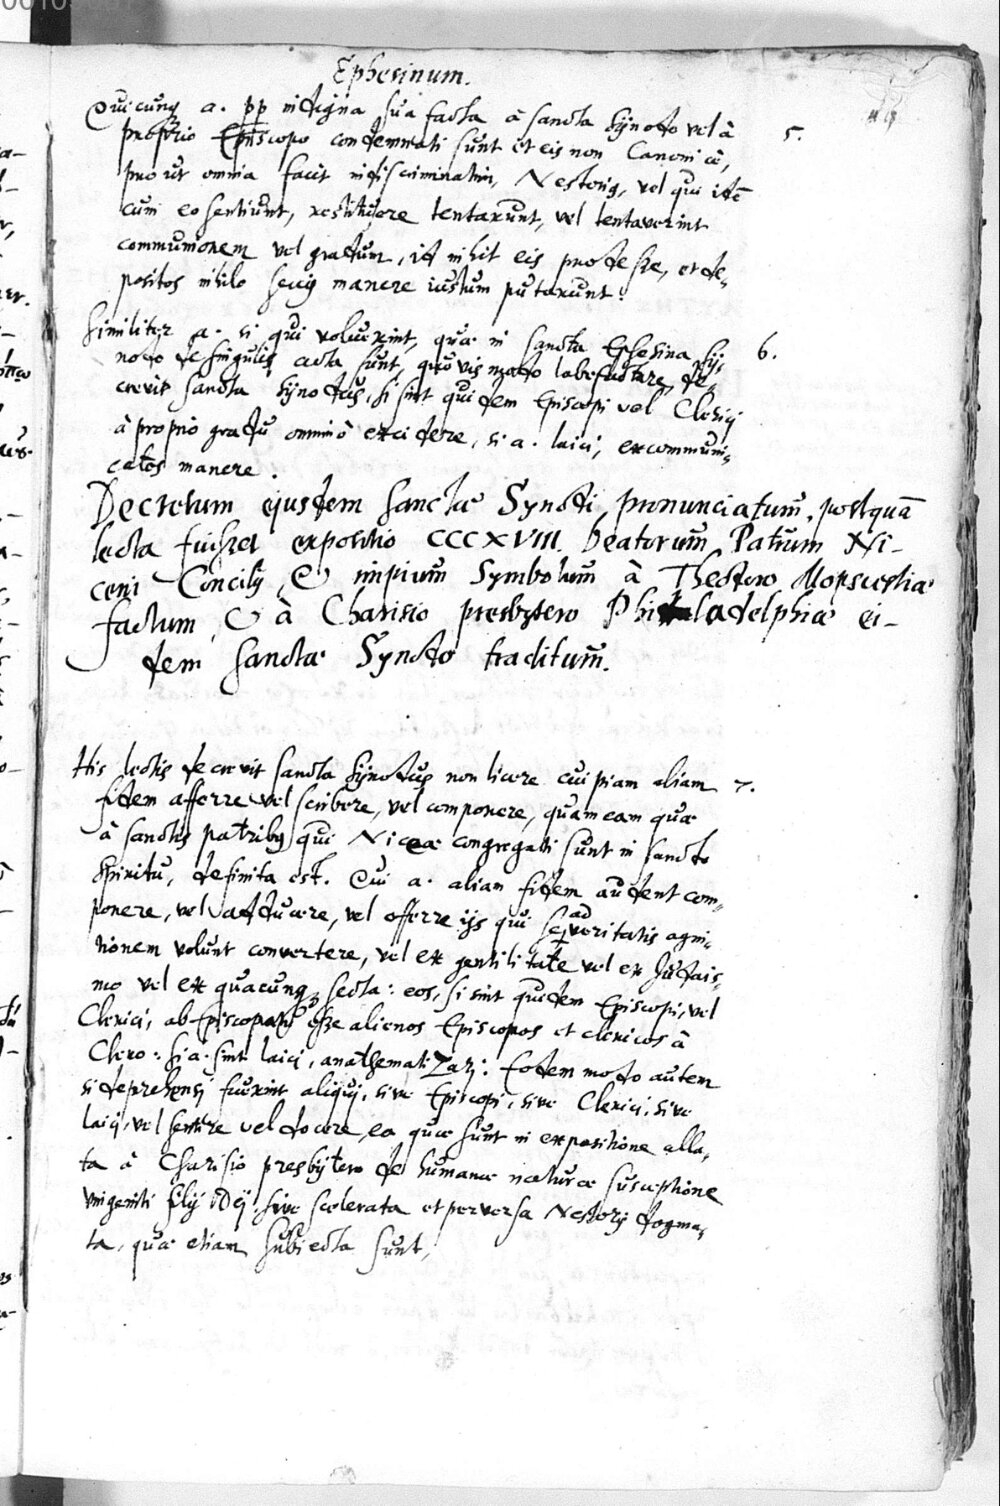 Ephesinum.
Quicunq a. pp indigna sua facta à sancta synodo vel à 5.
proprio Episcopo condemnati sunt et eis non Canonicè,
prout omnia facit indiscriminatim, Nestorig, vel qui idē
cum eo sentiunt, restituere tentarunt, vel tentaverint
communionem vel gradum, id nihil eis prodesse, et de,
positos nihilo secig manere iustum putarunt.
Similiter a. si qui voluerint, quæ in sancta Ephesina sy, 6.
nodo de singulis acta sunt, quovis modo labefactare, de,
crevit sancta synodus, si sint quidem Episcopi vel Clerici
à proprio gradu omninò excidere, si a. laici, excommuni,
catos manere.
Decretum ejusdem sanctæ Synodi, pronunciatum, postquā
lecta fuisset expositio CCCXVIII. Beatorum Patrum Ni-
ceni Concilij, & impium Symbolum à Theodoro Mopsuestiæ
factum, & à Charisio presbytero Philadelphiæ ei-
dem sanctæ Synodo traditum.
His lectis decrevit sancta synodus non licere cuipiam aliam 7.
fidem afferre vel scribere, vel componere, quam eam quæ
à sanctis patribus qui Niceæ congregati sunt in sancto
spiritu, definita est. Qui a. aliam fidem audent com,
ponere, vel adducere, vel offerre ijs qui se ad veritatis agni,
tionem volunt convertere, vel ex gentilitate vel ex Judais,
mo vel ex quacunq secta: eos, si sint quidem Episcopi, vel
Clerici, ab Episcopatu esse alienos Episcopos et clericos à
Clero: si a. sint laici, anathematizari: Eodem modo autem
si deprehensi fuerint aliqui, sive Episcopi, sive Clerici, sive
laici, vel sentire vel docere, ea quæ sunt in expositione alla,
ta à Charisio presbytero de humanæ naturæ susceptione
unigeniti filij Dei, sive scelerata et perversa Nestorij dogma,
ta, quæ etiam subiecta sunt,